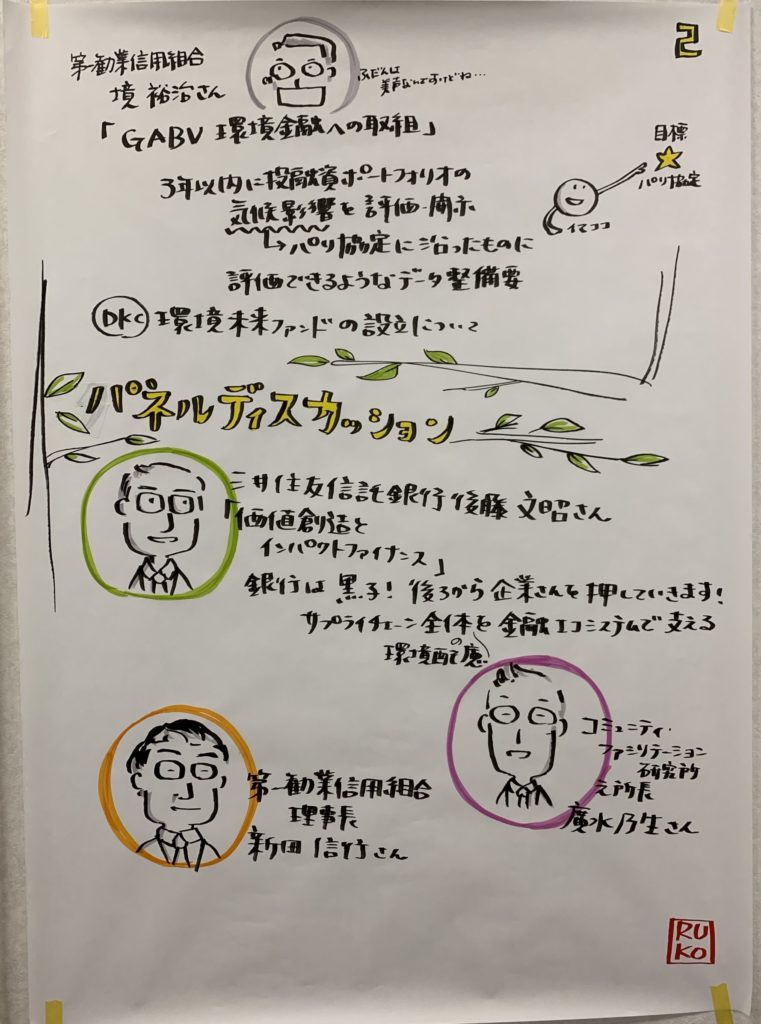 2
第一勧業信用組合
境 裕治さん
ふだんは
美声なんですけどね…
「GABV 環境金融への取組」
目標
パリ協定
イマココ
3年以内に投融資ポートフォリオの
気候影響を評価・開示
↳パリ協定に沿ったものに
評価できるようなデータ整備要
DKC 環境未来ファンドの設立について
パネルディスカッション
三井住友信託銀行 後藤 文昭さん
「価値創造と
インパクトファイナンス」
銀行は 黒子! 後ろから 企業さんを押していきます!
サプライチェーン全体を金融エコシステムで支える
の
環境配慮
コミュニティ・
ファシリテーション
研究所
元所長
廣水乃生さん
第一勧業信用組合
理事長
新田 信行さん
RU
KO